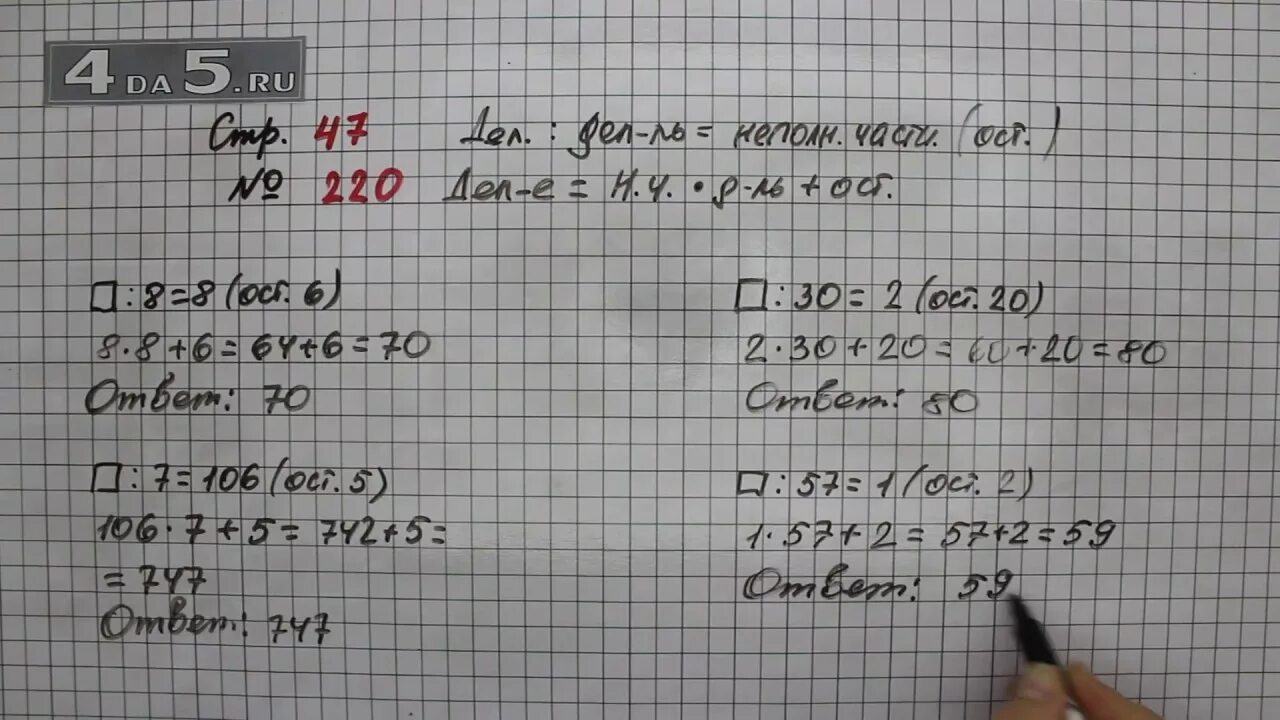 4DA5.RU
Стр. 47
Дел. : дел-ль = неполн. частн. (ост.)
№ 220
Дел-е = Н.ч. • д-ль + ост.
□ : 8 = 8 (ост. 6)
8 · 8 + 6 = 64 + 6 = 70
Ответ: 70
□ : 30 = 2 (ост. 20)
2 · 30 + 20 = 60 + 20 = 80
Ответ: 80
□ : 7 = 106 (ост. 5)
106 · 7 + 5 = 742 + 5 =
= 747
Ответ: 747
□ : 57 = 1 (ост. 2)
1 · 57 + 2 = 57 + 2 = 59
Ответ: 59